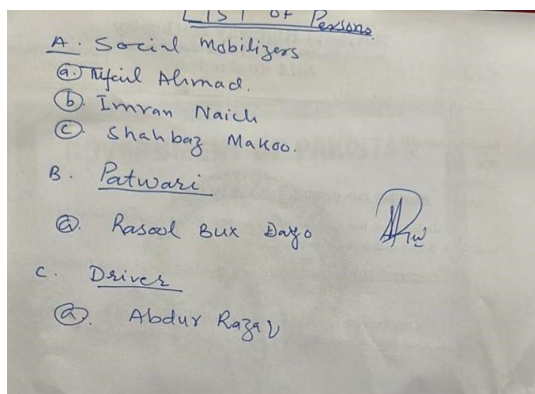 List of Persons
A. Social Mobilizers
a. Tufail Ahmad.
b. Imran Naich
c. Shahbaz Makoo.
B. Patwari
a. Rasool Bux Dayo
C. Driver
a. Abdur Razaq